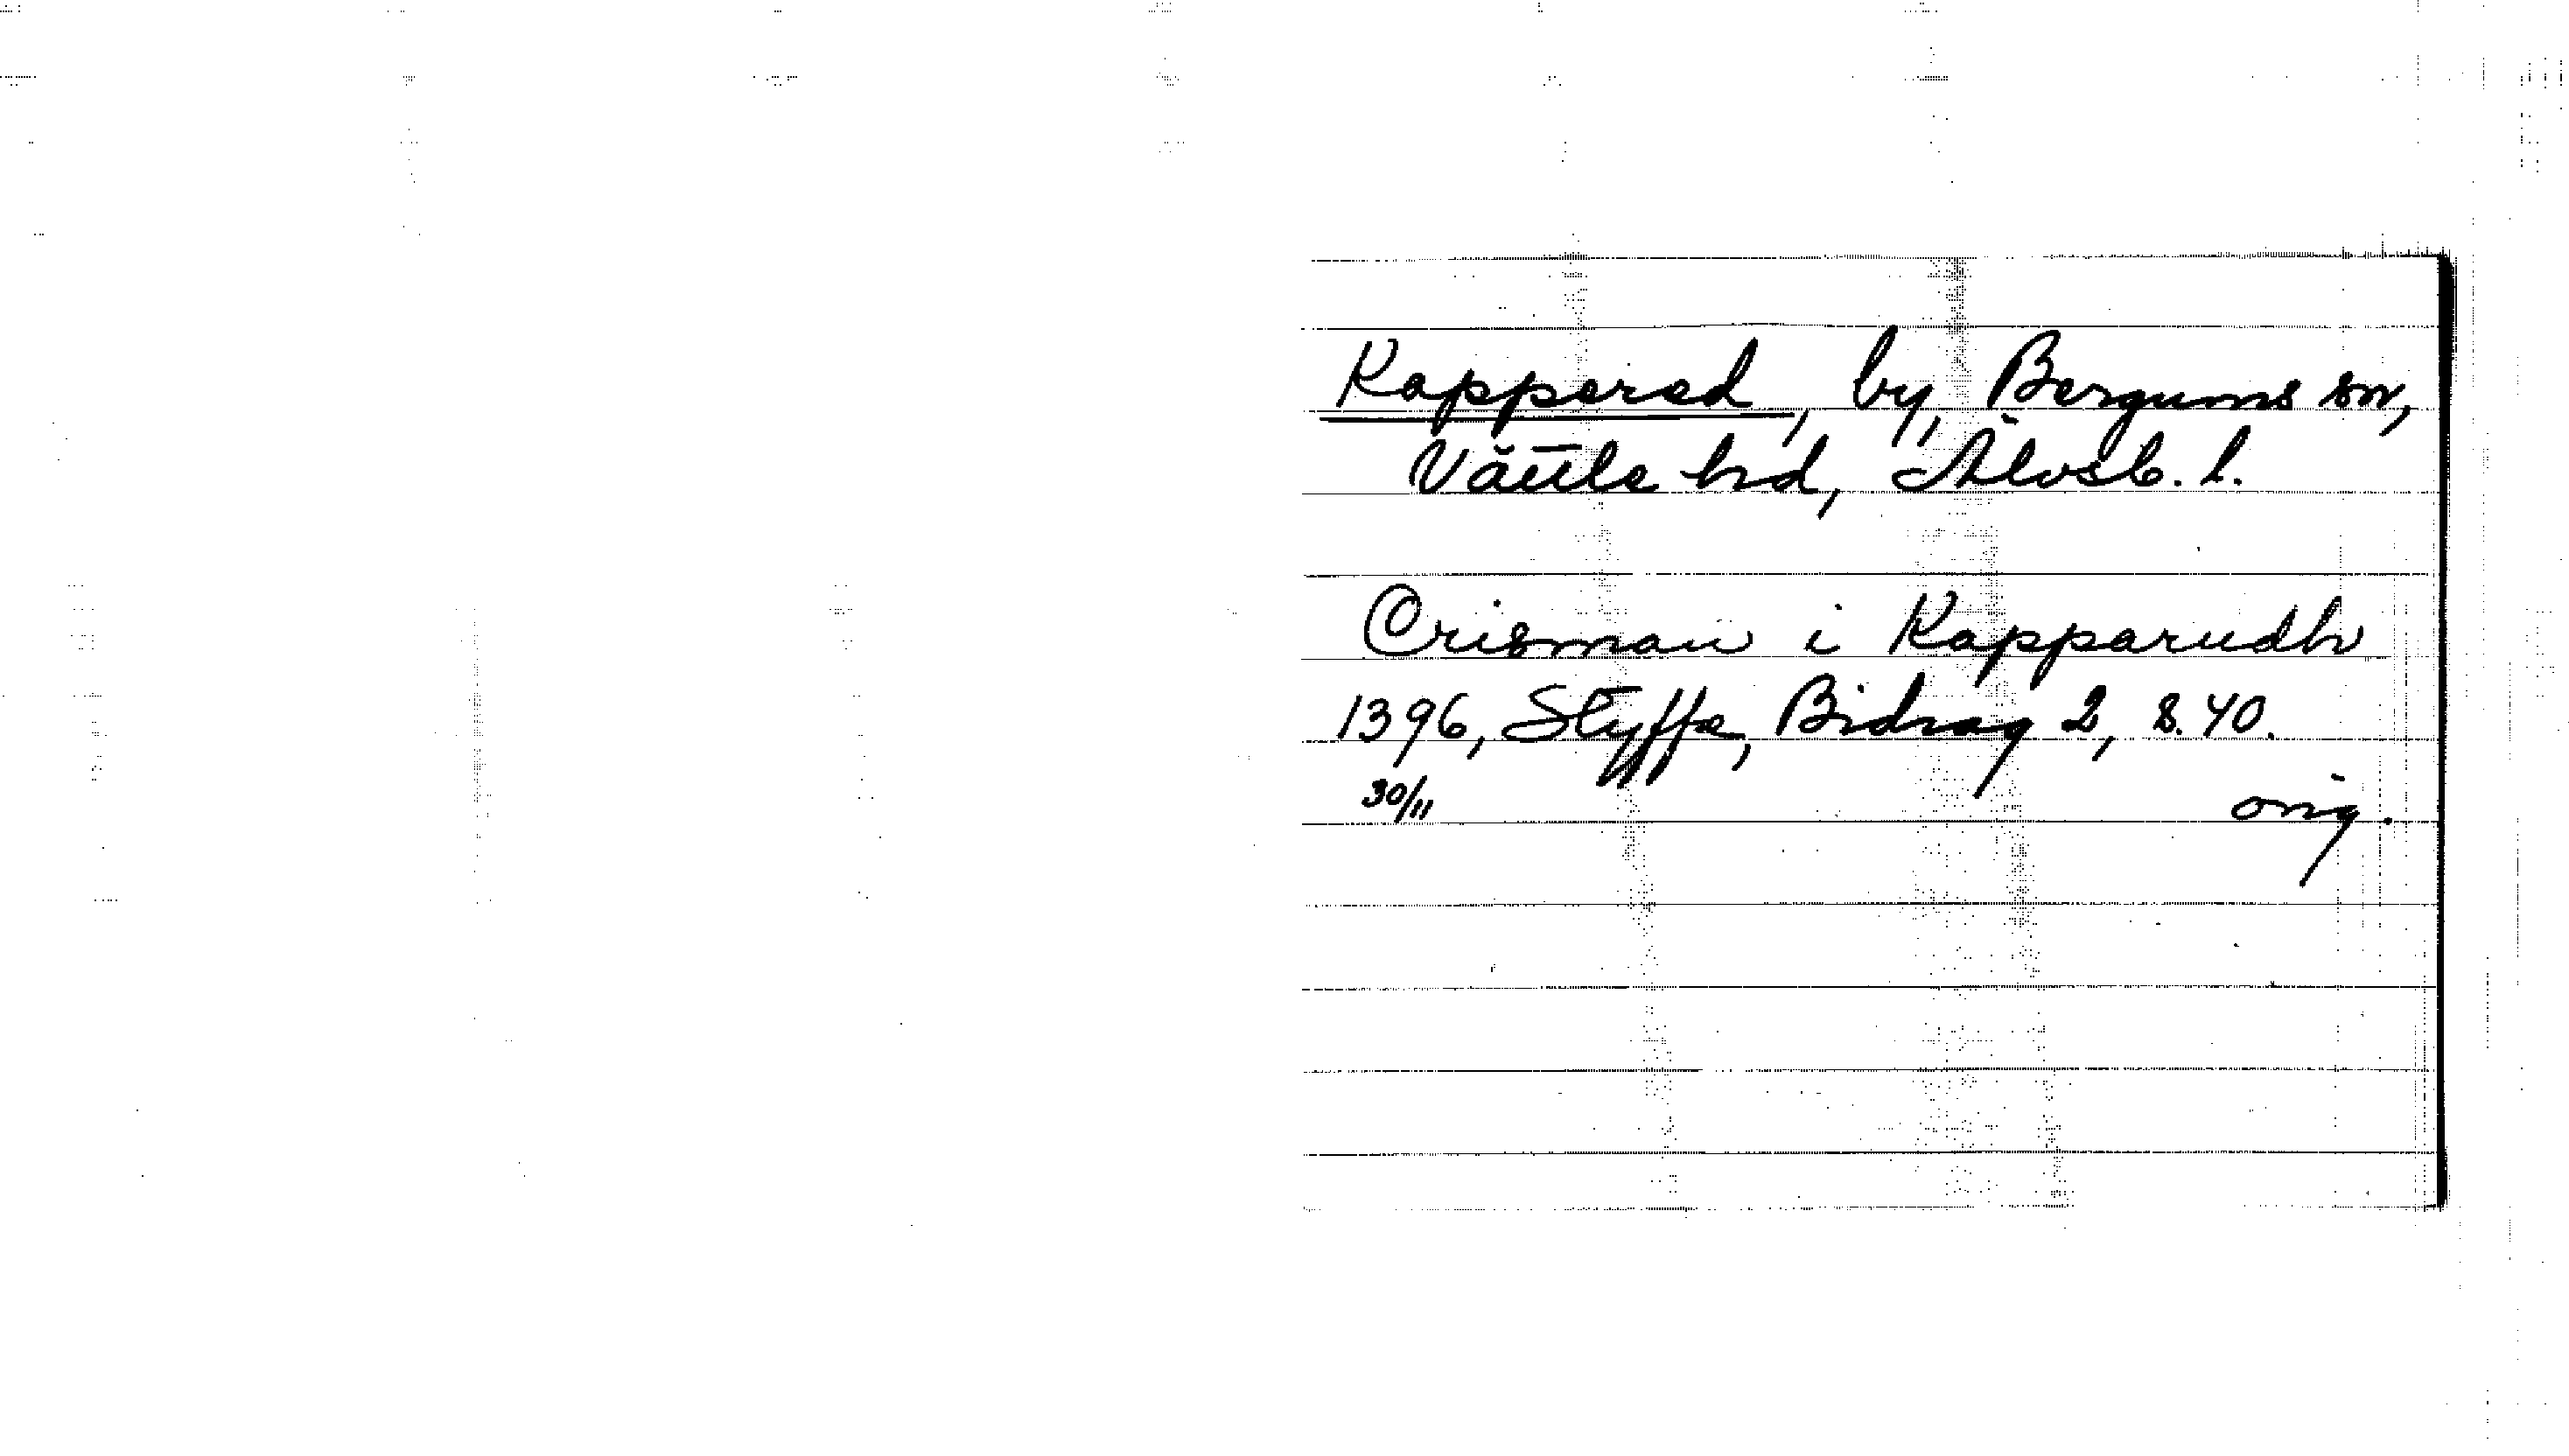 Kappered, by, Bergums sn,
Vättle hd, Älvsb. l.
Crisman i Kapparudh
1396, Styffe, Bidrag 2, s. 40.
30/11 orig.